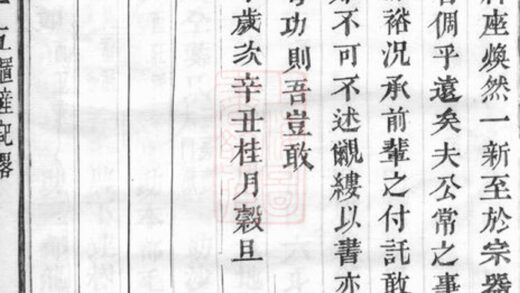 座煥然一新至於宗器
倜乎遠矣夫公常之事
裕況承前輩之付託敢
不可不述覼縷以書亦
功則吾豈敢
歲次辛丑桂月穀旦